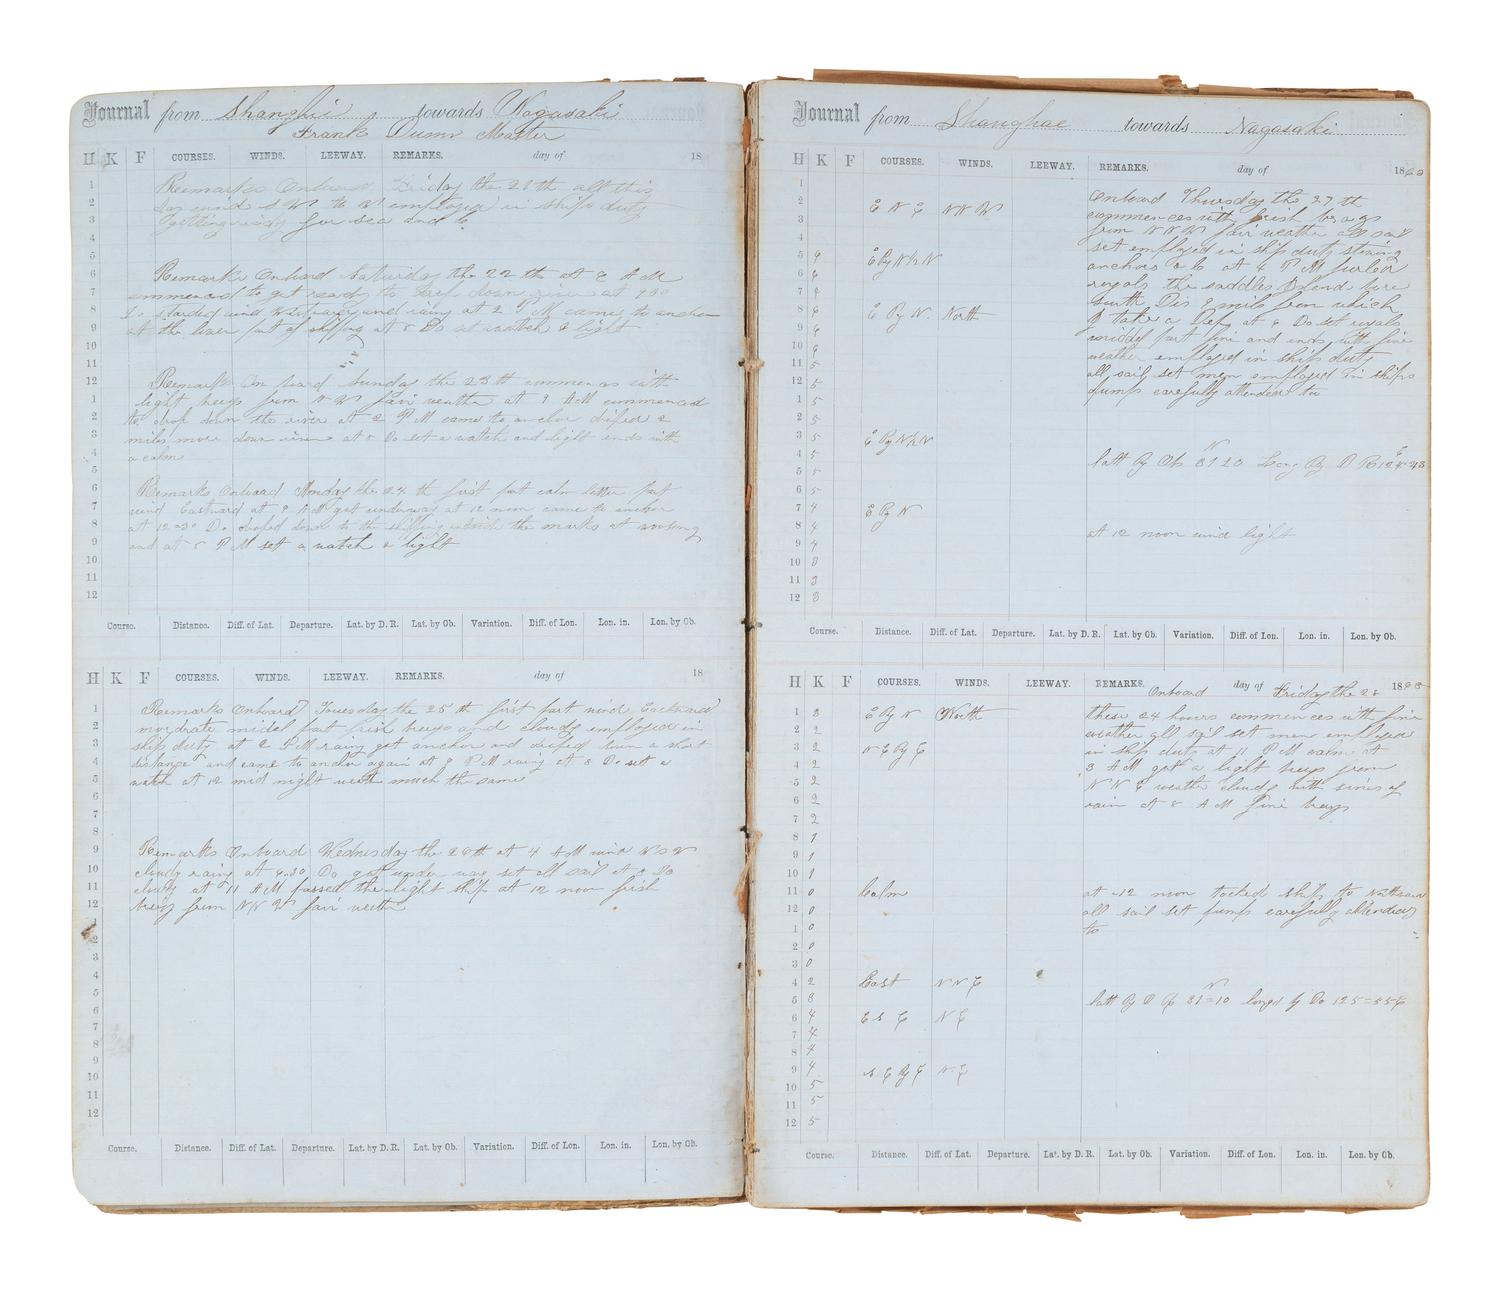 Journal from Shanghii towards Nagasaki
Frank Master
H K F COURSES. WINDS. LEEWAY. REMARKS. day of 18
1
2
3
4
5
6
7
8
9
10
11
12
1
2
3
4
5
6
7
8
9
10
11
12
Remarks Onboard Friday the 21th all this
day wind S W to W employed in ships duty
getting redy for sea and &c
Remarks Onboard Saturday the 22 th at 6 A M
commenced to get ready to drop down river at 9 30
Do started wind Westward and raing at 2 P M came to anchor
at the lower part of shipping at 8 Do set a watch & light
Remarks On board Sunday the 23 th commences with
light breeys from N W fair weather at 9 A M commenced
to drop down the river at 2 P M came to anchor drifed 2
miles more down river at 8 Do set a watch and light ends with
a calm
Remarks Onboard Monday the 24 th first part calm latter part
wind Eastward at 9 A M got underway at 12 noon came to anchor
at 12=30 Do droped down to the shipping outside the marks at woosung
and at 8 P M set a watch & light
Course. Distance. Diff. of Lat. Departure. Lat. by D. R. Lat. by Ob. Variation. Diff. of Lon. Lon. in. Lon. by Ob.
H K F COURSES. WINDS. LEEWAY. REMARKS. day of 18
1
2
3
4
5
6
7
8
9
10
11
12
1
2
3
4
5
6
7
8
9
10
11
12
Remarks Onboard Tuesday the 25 th first part wind Eastward
mordrate midel part fresh breeys and cloudy employed in
ship duty at 2 P M raing got anchor and drifed down a short
distance and came to anchor again at 9 P M raing at 8 Do set a
watch at 12 mid night weath much the same
Remarks Onboard Wednesday the 26th at 4 A M wind W S W
cloudy raing at 6.30 Do got under way set all sail at 8 Do
cloudy at 11 A M passed the light ship at 12 noon frish
breyz from N N W fair weath
Course. Distance. Diff. of Lat. Departure. Lat. by D. R. Lat. by Ob. Variation. Diff. of Lon. Lon. in. Lon. by Ob.
Journal from Shanghae towards Nagasaki
H K F COURSES. WINDS. LEEWAY. REMARKS. day of 18
1
2 E N E N N W
3
4
5 6 E By N ½ N
6 6
7
8 6 E By N. North
9 6
10 6
11 5
12 5
1 5
2 5
3 5 E By N ½ N
4 5
5 5
6 5
7 4 E By N
8 4
9 4
10 3
11 3
12 3
Onboard Thursday the 27 th
commences with frish
from N N W fair weather all sail
set employed in ship duty stowing
anchors &c at 4 P M furled
royals the saddles Island bore
South Dis 9 mils from which
I take a at 6 Do set royals
middel part fine and ends with fine
weather employed in ships duty
all sail set men employed in ships
pumps carefully attended too
N E
latt By Ob 31 20 Long By D R
at 12 noon wind light
Course. Distance. Diff. of Lat. Departure. Lat. by D. R. Lat. by Ob. Variation. Diff. of Lon. Lon. in. Lon. by Ob.
H K F COURSES. WINDS. LEEWAY. REMARKS. Onboard day of Friday the 28 18
1 3 E By N North
2 2
3 2 N E By E
4 2
5 2
6 2
7 2
8 1
9 1
10 1
11 0 Calm
12 0
1 0
2 0
3 0
4 2 East N N E
5 3
6 4 E S E N E
7 4
8 4
9 4 S E By E N E
10 5
11 5
12 5
these 24 hours commences with fine
weather all sail set men employed
in ship duty at 11 P M calm at
3 A M got a light breys from
N N E weather cloudy with sines of
rain at 8 A M fine breys
at 12 noon tacked ship to
all sail set pumps carefully attended
to
N
latt By D R 31=10 longd by Do
Course. Distance. Diff. of Lat. Departure. Lat. by D. R. Lat. by Ob. Variation. Diff. of Lon. Lon. in. Lon. by Ob.